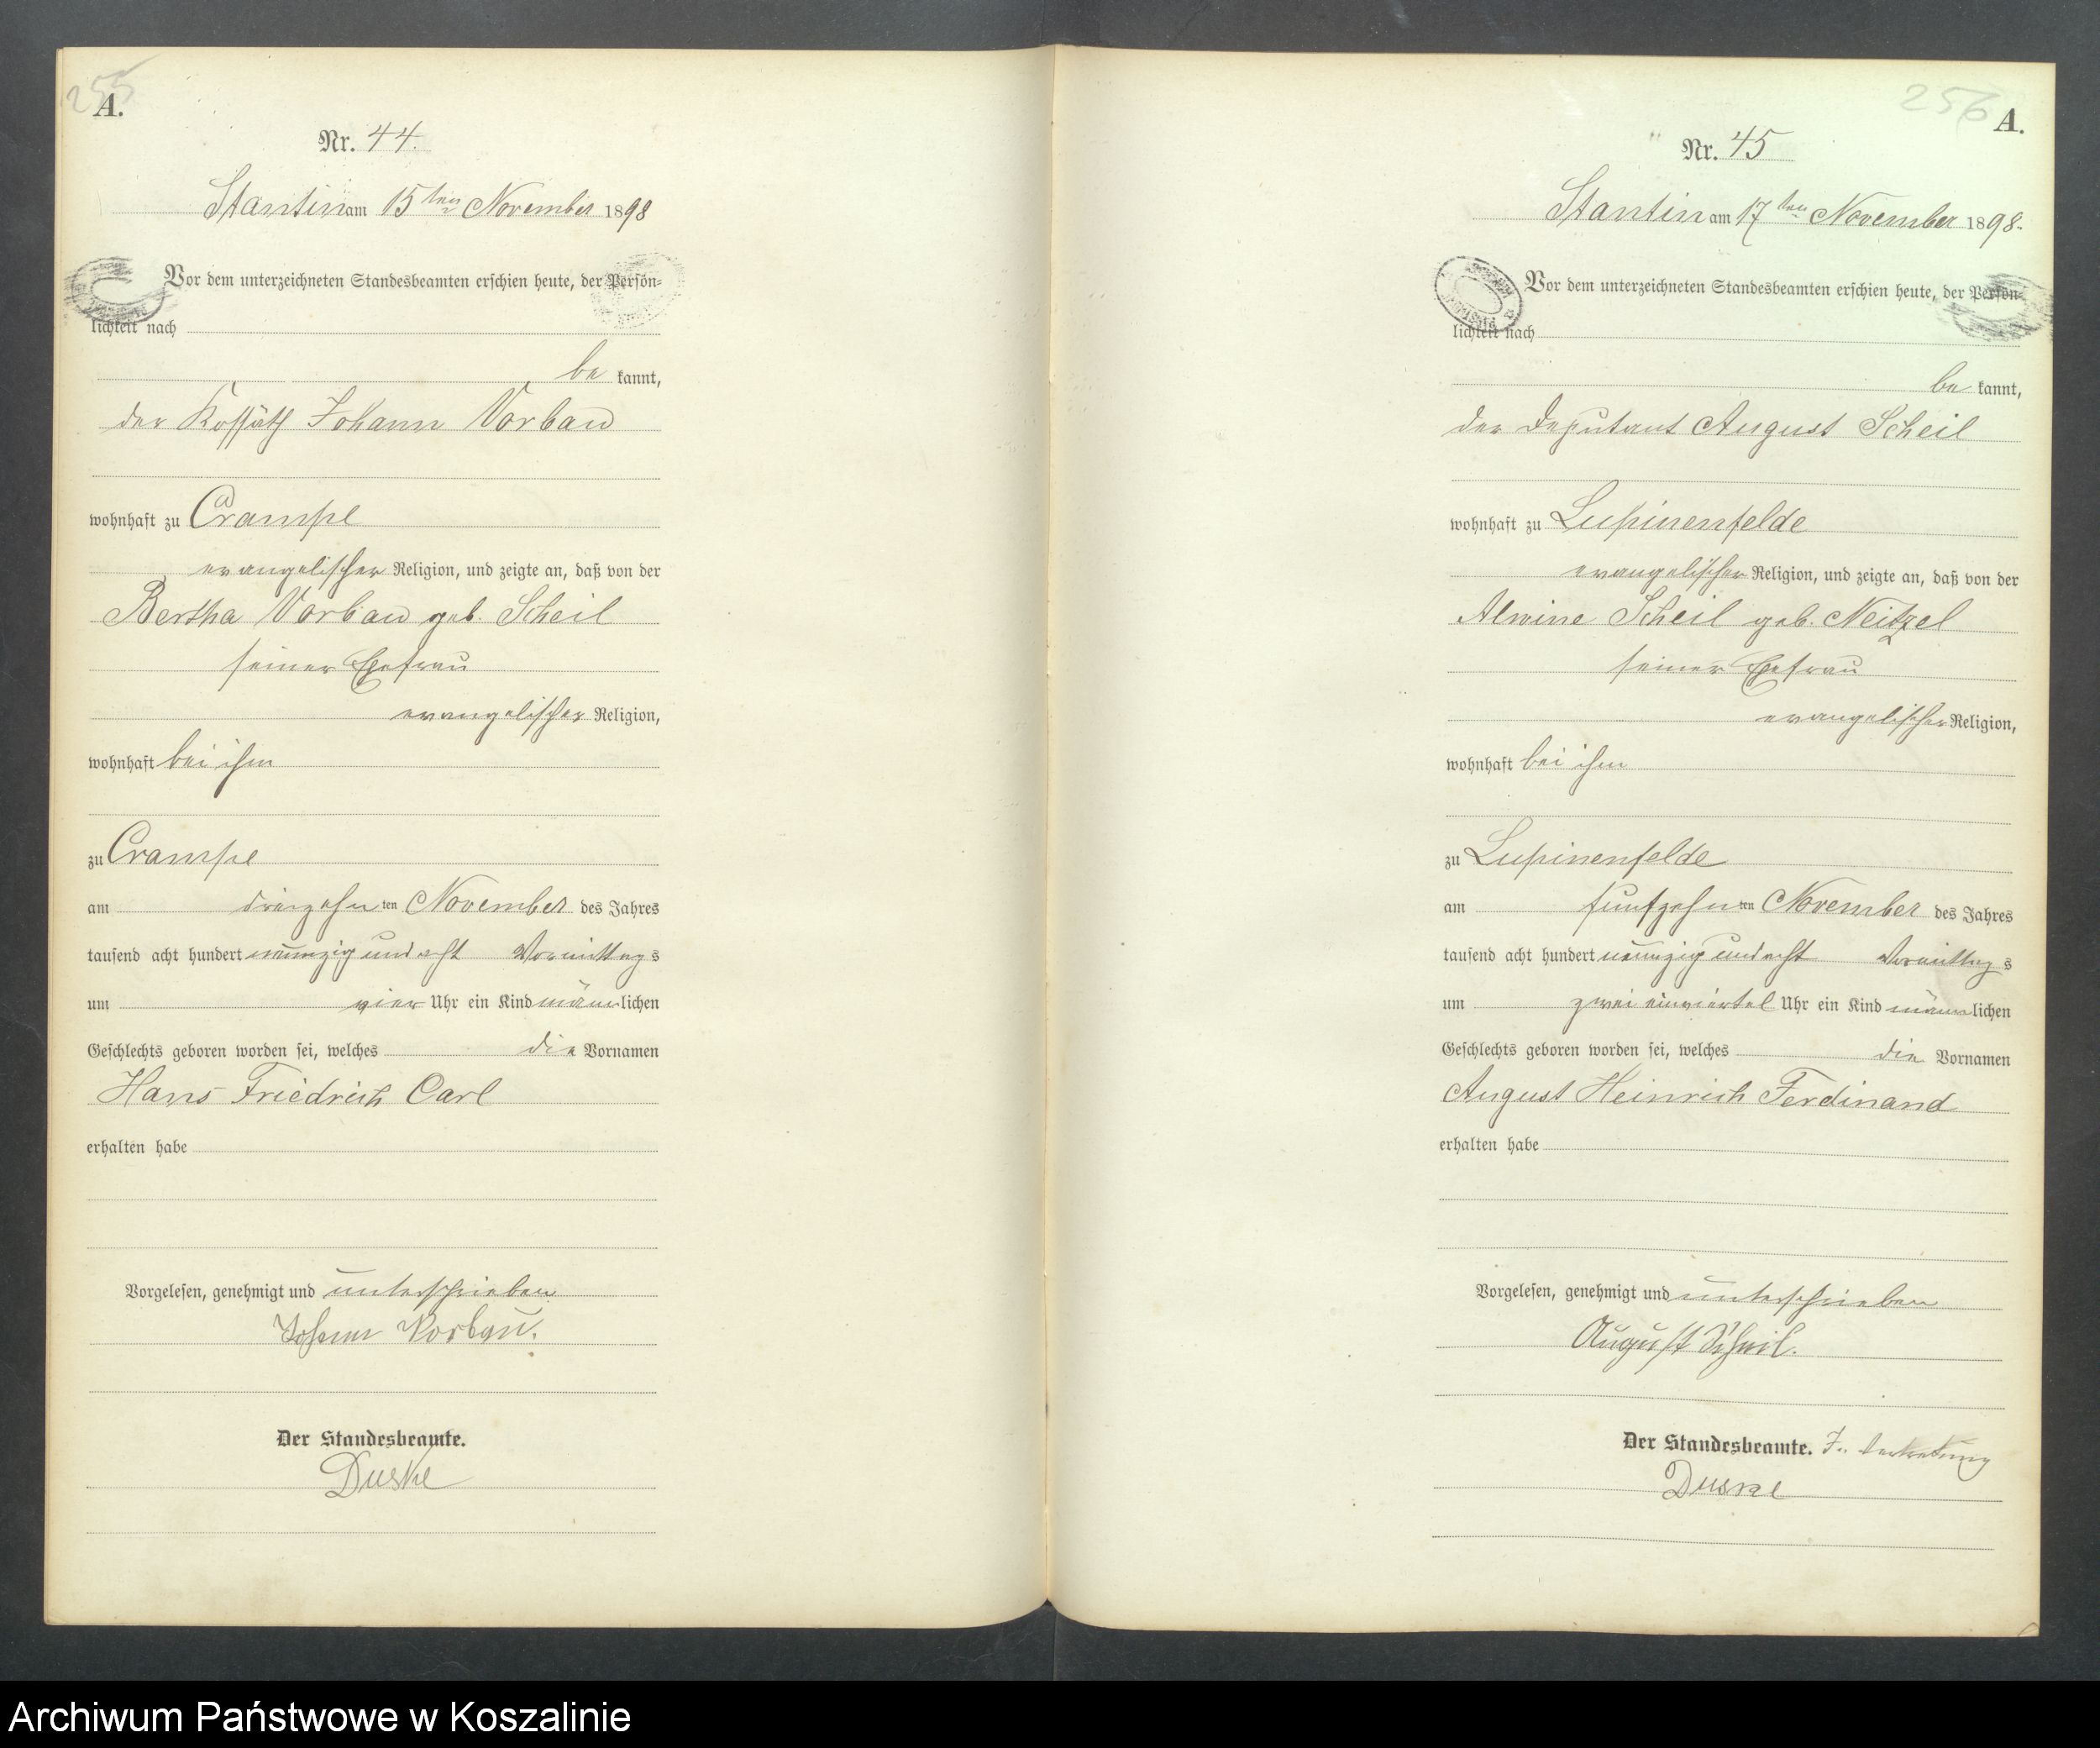 255
A.
Nr. 44.
Stantin am 15ten November 1898
Vor dem unterzeichneten Standesbeamten erschien heute, der Persön=
lichkeit nach
be kannt,
der Kossäth Johann Vorbau
wohnhaft zu Crampe
evangelischer Religion, und zeigte an, daß von der
Bertha Vorbau geb. Scheil
seiner Ehefrau
evangelischer Religion,
wohnhaft bei ihm
zu Crampe
am dreizehnten November des Jahres
tausend acht hundert neunzig und acht Vormittags
um vier Uhr ein Kind männlichen
Geschlechts geboren worden sei, welches die Vornamen
Hans Friedrich Carl
erhalten habe
Vorgelesen, genehmigt und unterschrieben
Johann Vorbau.
Der Standesbeamte.
Duske
256
A.
Nr. 45
Stantin am 17ten November 1898.
Vor dem unterzeichneten Standesbeamten erschien heute, der Persön=
lichkeit nach
be kannt,
der Deputant August Scheil
wohnhaft zu Lupinenfelde
evangelischer Religion, und zeigte an, daß von der
Alwine Scheil geb. Neitzel
seiner Ehefrau
evangelischer Religion,
wohnhaft bei ihm
zu Lupinenfelde
am funfzehnten November des Jahres
tausend acht hundert neunzig und acht Vormittags
um zwei einviertel Uhr ein Kind männlichen
Geschlechts geboren worden sei, welches die Vornamen
August Heinrich Ferdinand
erhalten habe
Vorgelesen, genehmigt und unterschrieben
August Scheil.
Der Standesbeamte. In Vertretung
Duske
Archiwum Państwowe w Koszalinie